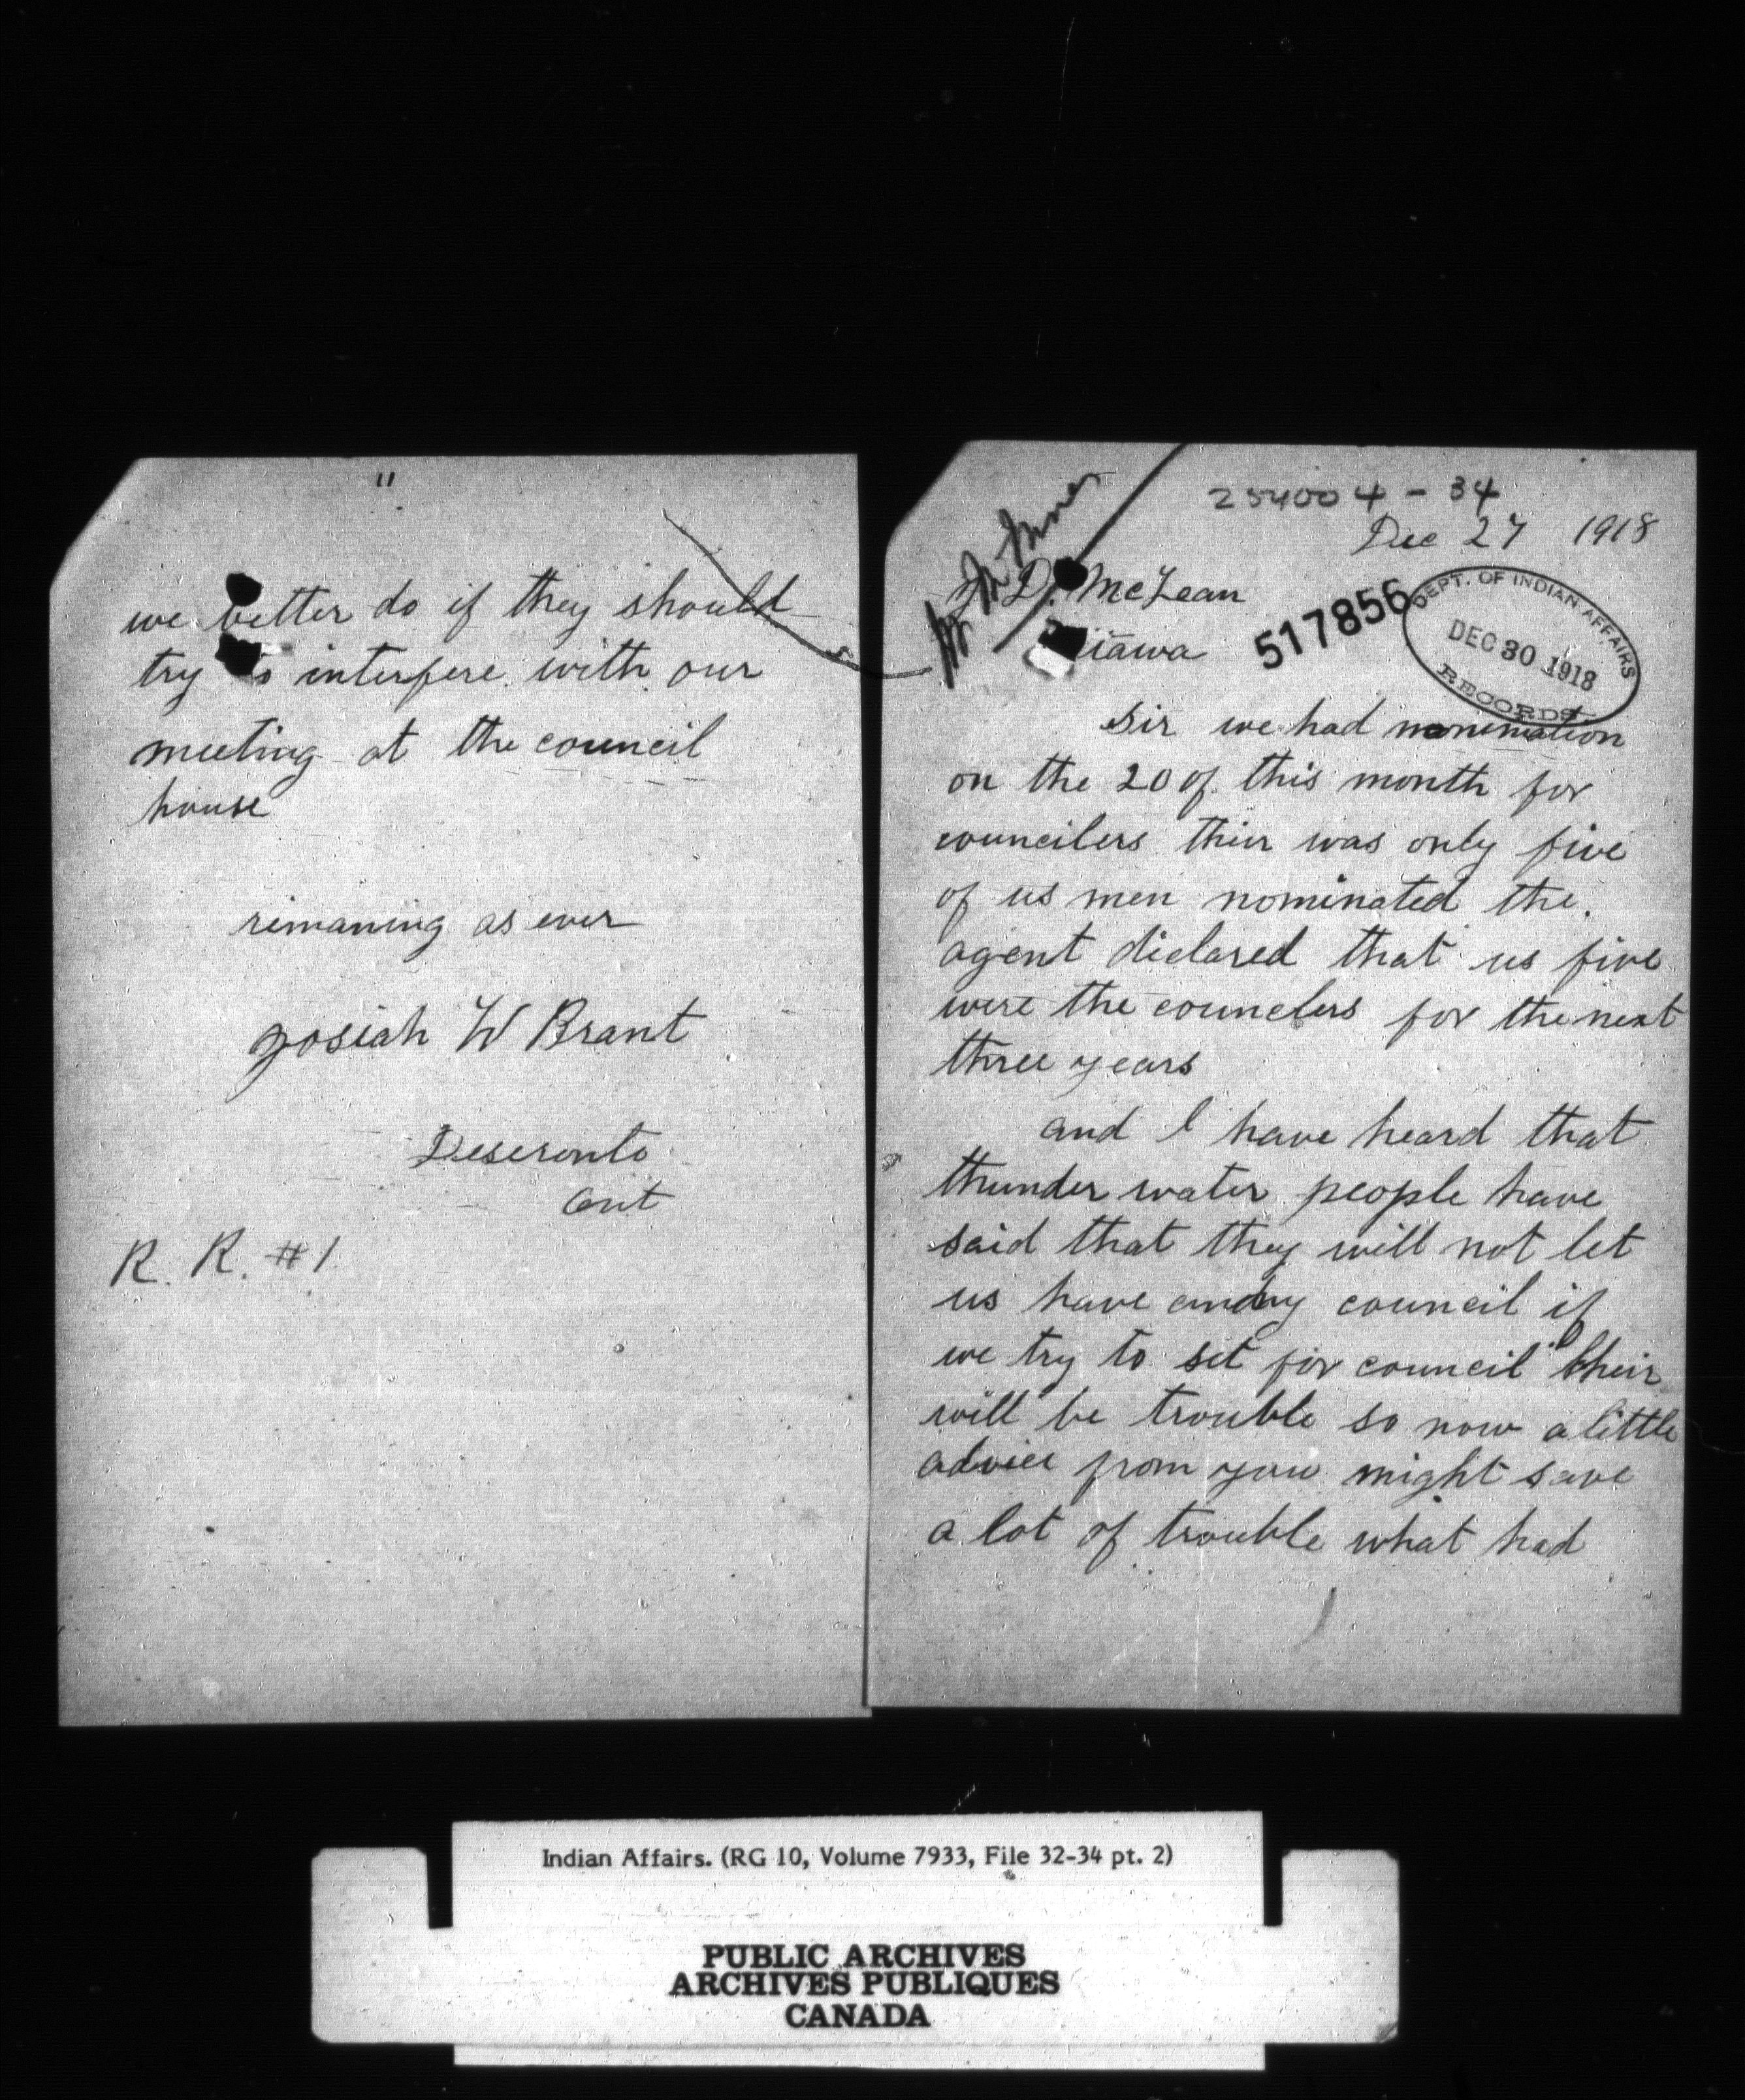 254004-34
Dec 27 1918
J. D. McLean
517856
DEPT. OF INDIAN AFFAIRS
DEC 30 1918
RECORDS
Sir we had nonimation
on the 20 of this month for
councilers thier was only five
of us men nominated the.
agent diclared that us five
were the councelers for the next
three years
and I have heard that
thunder water people have
said that they will not let
us have council if
we try to set for council their
will be trouble so now a little
advice from you might save
a lot of trouble what had
"
we better do if they should
try to interfere with our
meeting at the council
house
rimaning as ever
Josiah W Brant
Deseronto
Ont
R. R. #1
Indian Affairs. (RG 10, Volume 7933, File 32-34 pt. 2)
PUBLIC ARCHIVES
ARCHIVES PUBLIQUES
CANADA